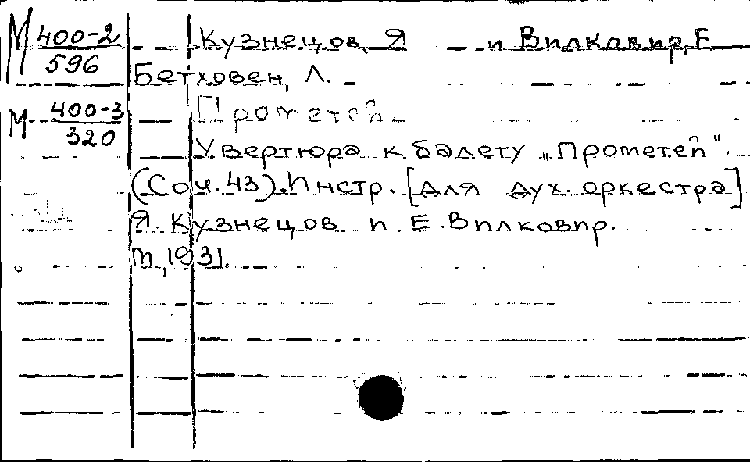 М 400-2/596 Кузнецов, Я и Вилковир, Е
Бетховен, Л.
М 400-3/320 Прометей
Увертюра к балету „Прометей".
(Соч. 43). Инстр. [для дух. оркестра]
Я. Кузнецов и Е. Вилковир.
М, 1931.